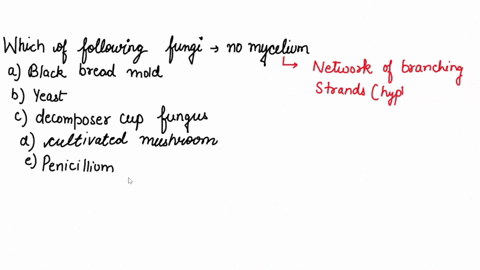 Which of following fungi → no mycelium
a) Black bread mold
↳ Network of branching
b) Yeast
Strands (hyp
c) decomposer cup fungus
d) cultivated mushroom
e) Penicillium